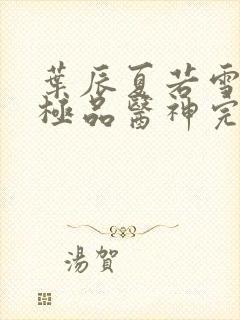 葉辰夏若雪
極品醫神完
湯賀